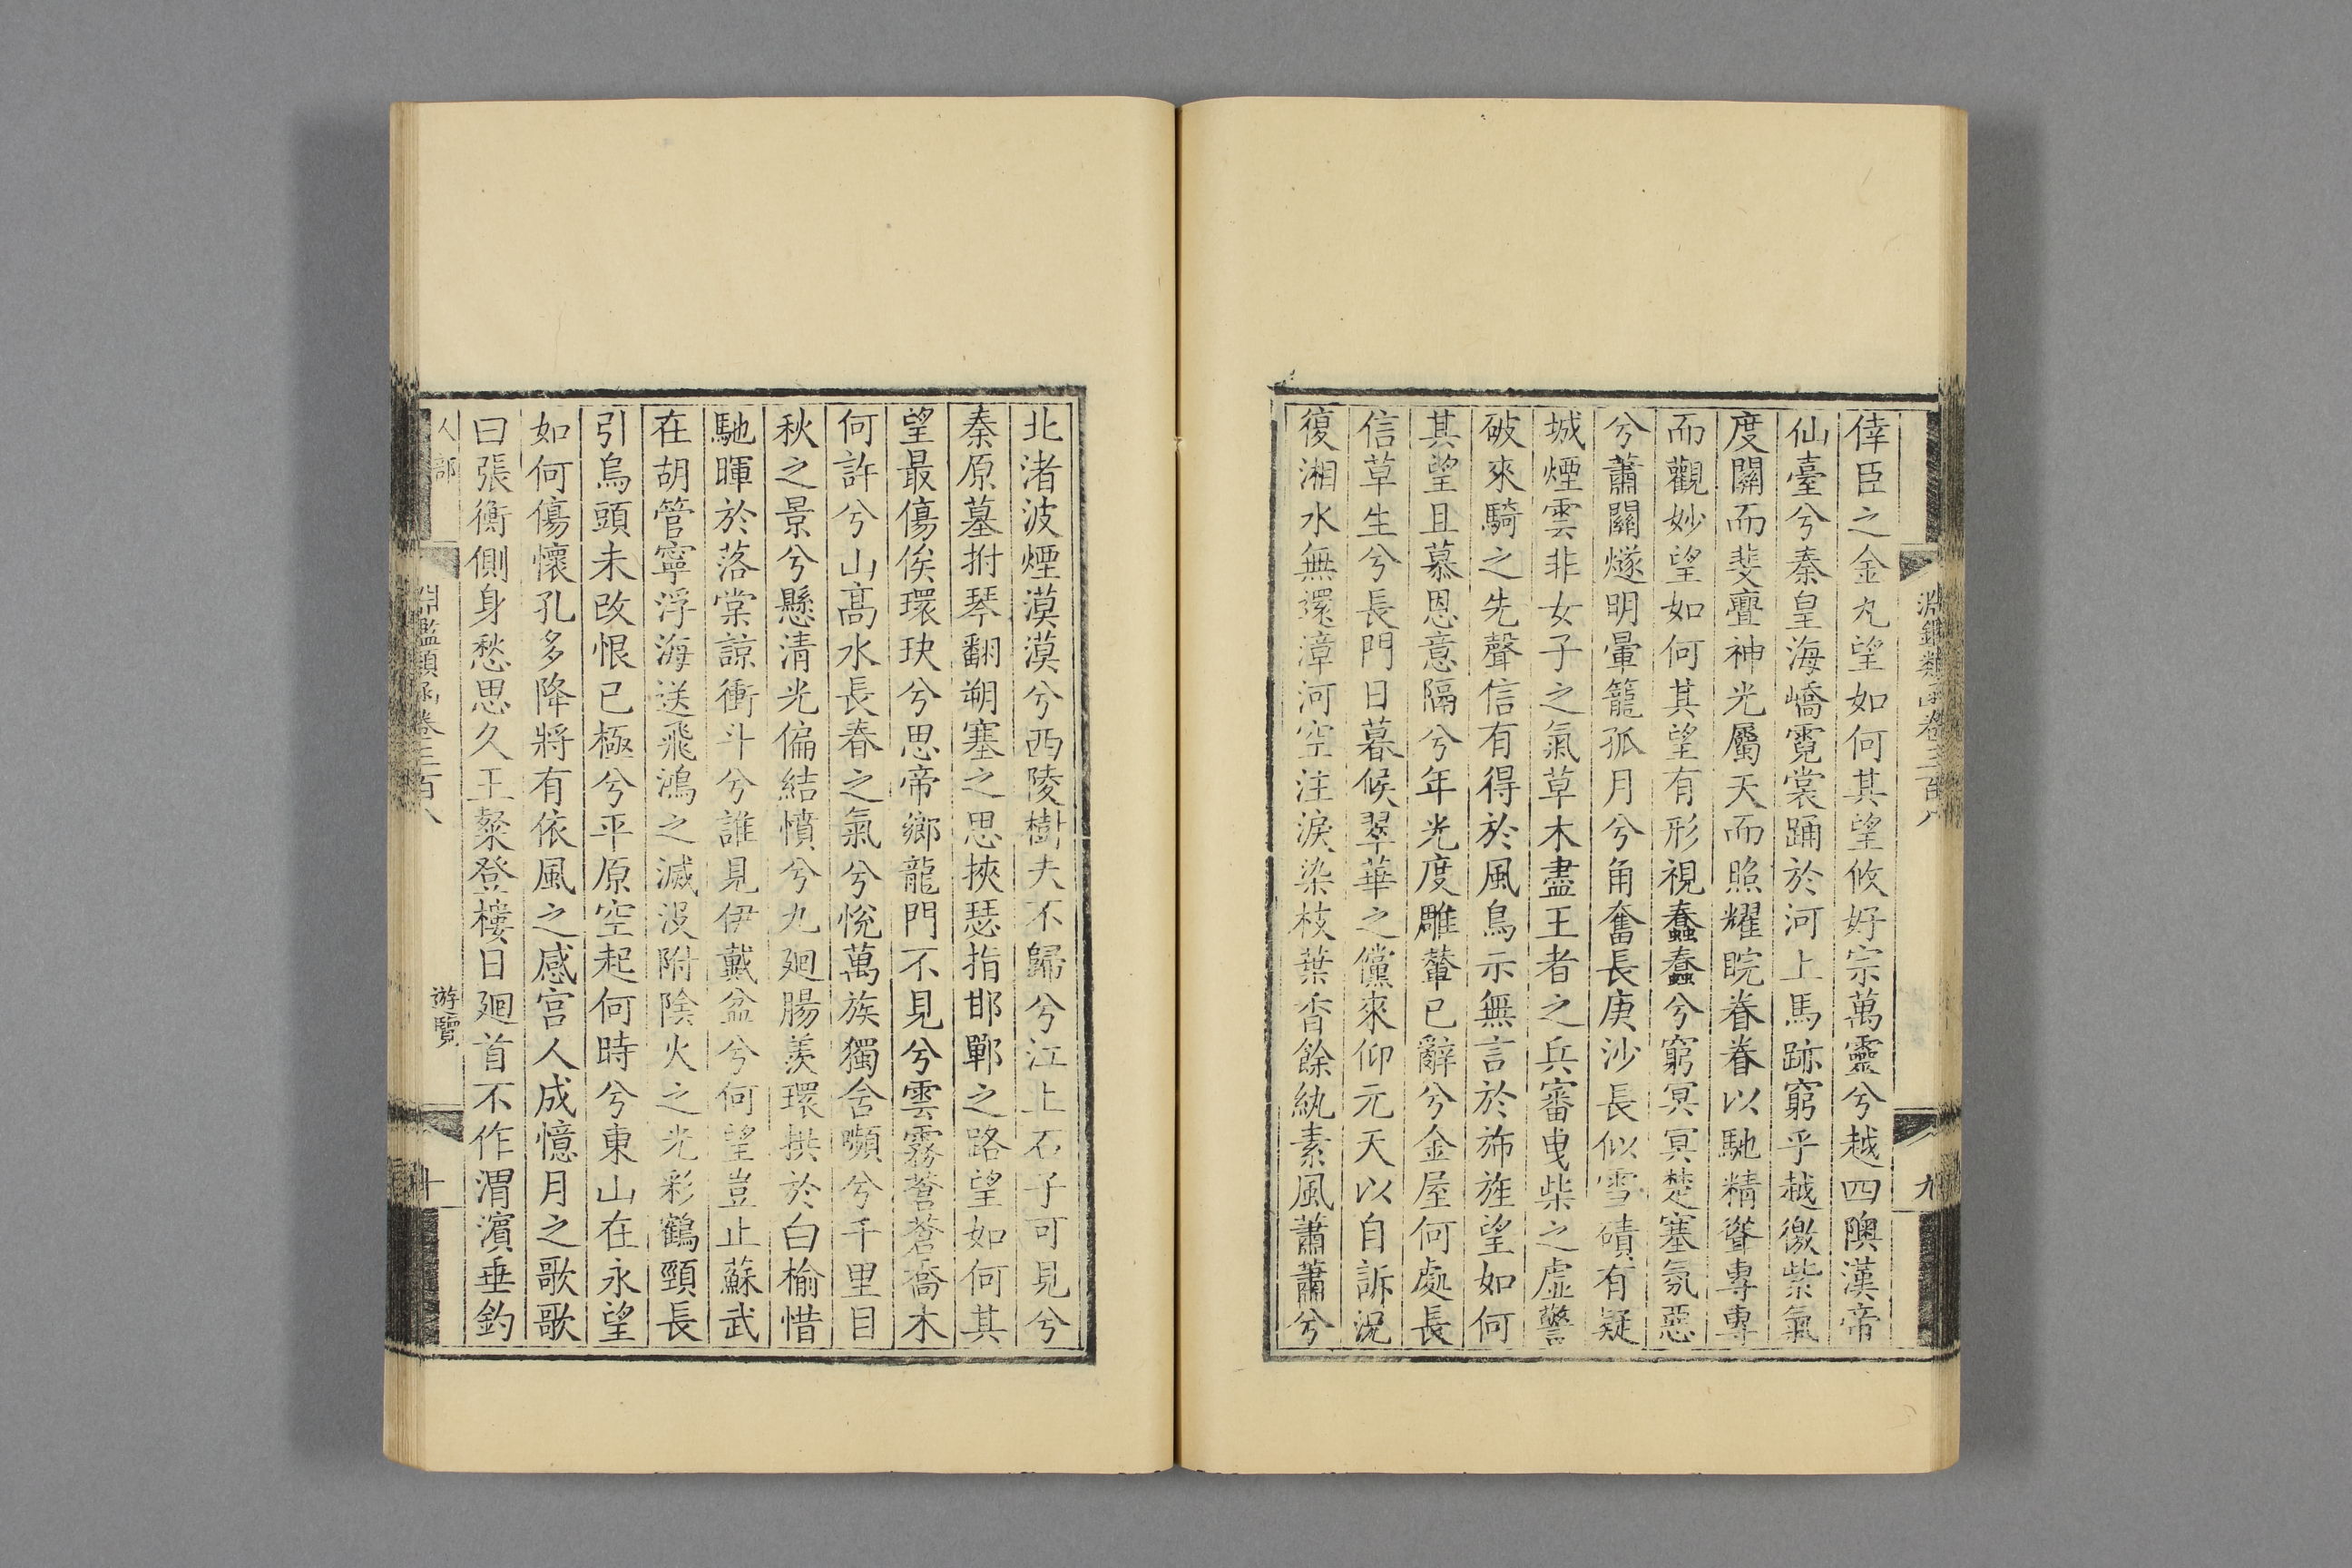 淵鑑類函卷三百八
九
倖臣之金丸望如何其望攸好宗萬靈兮越四隩漢帝
仙臺兮秦皇海嶠霓裳踊於河上馬跡窮乎越徼紫氣
度關而斐亹神光屬天而照耀睆眷眷以馳精聳專專
而觀妙望如何其望有形視蠢蠢兮窮冥冥楚塞氛惡
兮蕭關燧明暈籠孤月兮角奮長庚沙長似雪磧有疑
城煙雲非女子之氣草木盡王者之兵審曳柴之虛警
破來騎之先聲信有得於風鳥示無言於斾旌望如何
其望且慕恩意隔兮年光度雕輦已辭兮金屋何處長
信草生兮長門日暮候翠華之儻來仰元天以自訴況
復湘水無還漳河空注淚染枝葉香餘紈素風蕭蕭兮
北渚波煙漠漠兮西陵樹夫不歸兮江上石子可見兮
秦原墓拊琴翻朔塞之思挾瑟指邯鄲之路望如何其
望最傷俟環玦兮思帝鄉龍門不見兮雲霧蒼蒼喬木
何許兮山高水長春之氣兮悅萬族獨含嚬兮千里目
秋之景兮懸清光偏結憤兮九廻腸羨環拱於白榆惜
馳暉於落棠諒衝斗兮誰見伊戴盆兮何望豈止蘇武
在胡管寧浮海送飛鴻之滅沒附陰火之光彩鶴頸長
引烏頭未改恨已極兮平原空起何時兮東山在永望
如何傷懷孔多降將有依風之感宮人成憶月之歌歌
曰張衡側身愁思久王粲登樓日廻首不作渭濱垂釣
人部
淵鑑類函卷三百八
遊覽
十